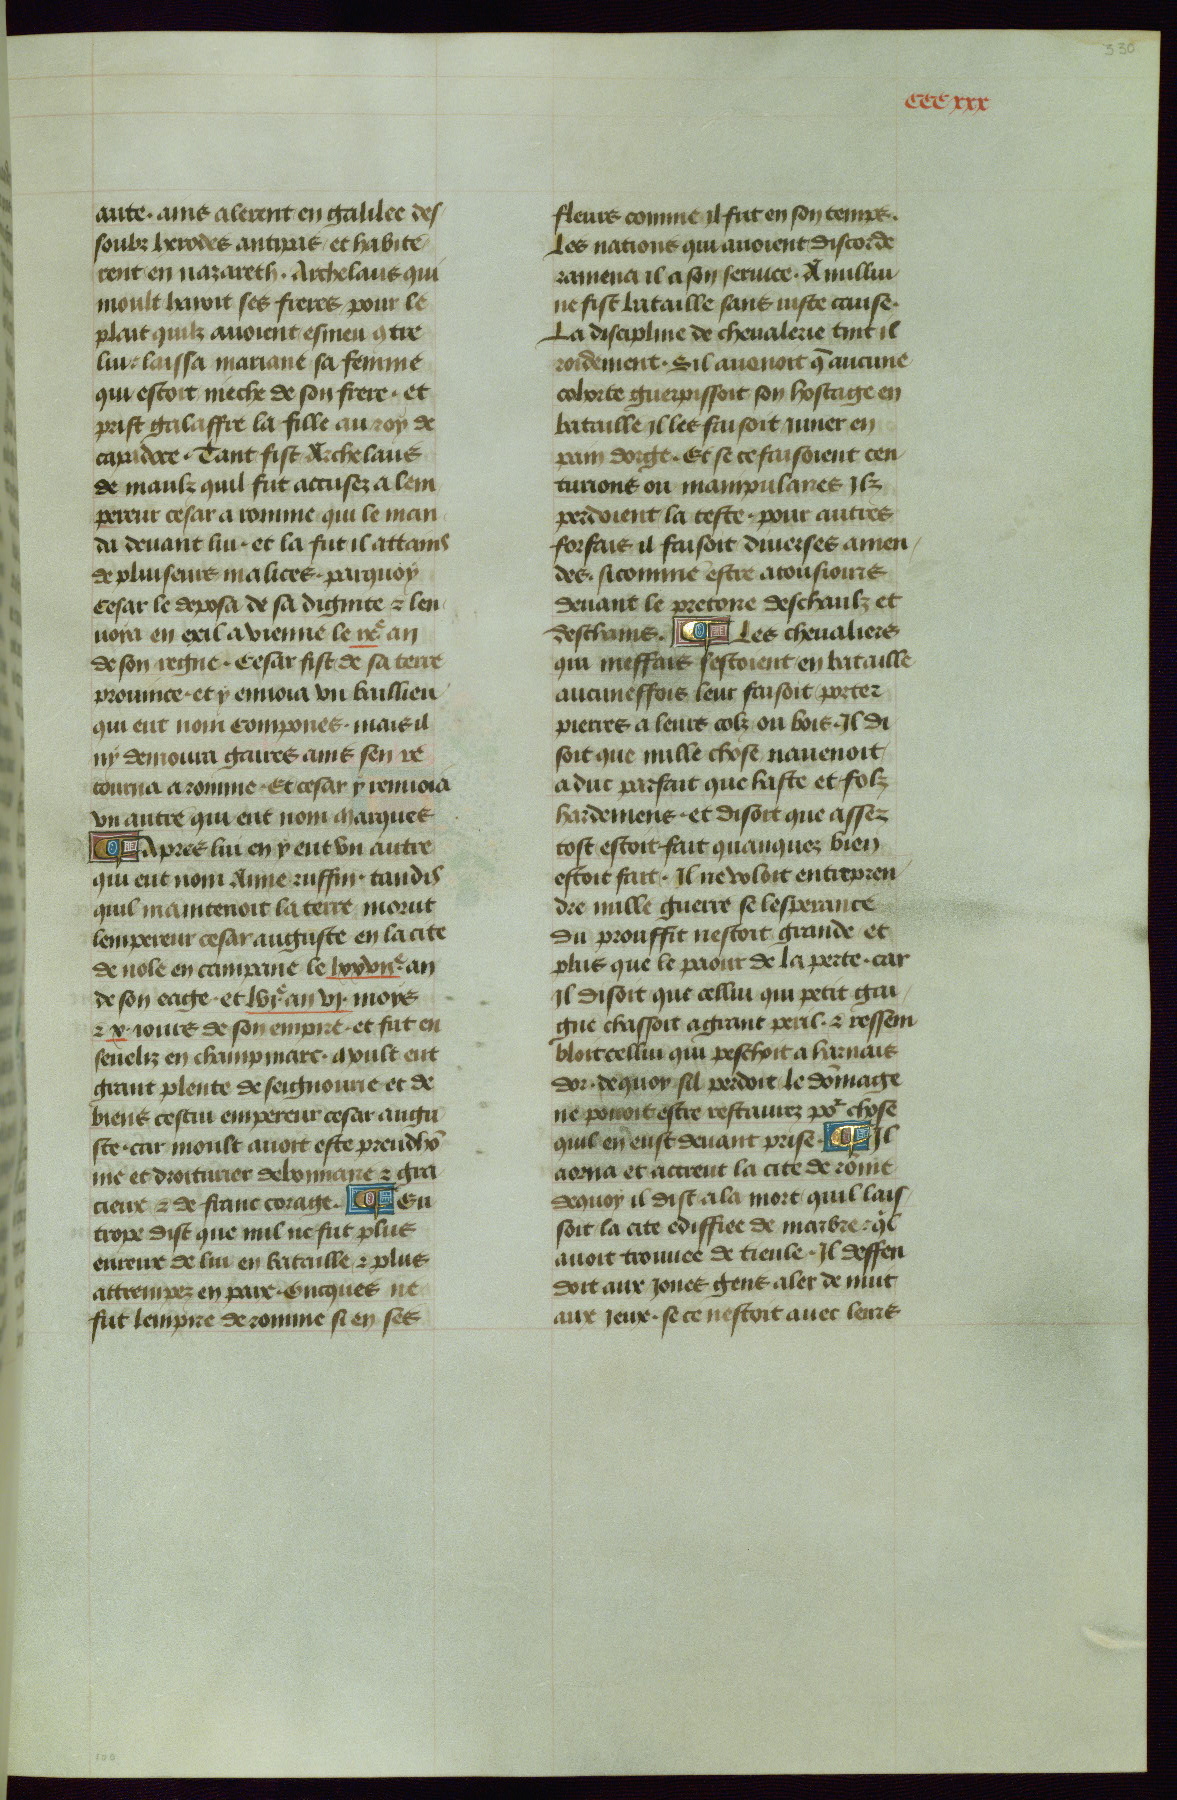 330
CCC xxx
aute · ains alerent en galilee des
soubz herodes antipas et habite
rent en nazareth · Archelaus qui
moult haioit ses freres pour le
plait quilz auoient esmeu ꝯtre
lui · laissa mariane sa femme
qui estoit nieche de son frere · et
prist galaffre la fille au roy de
capadoce · Tant fist Archelaus
de maulz quil fut accusez a lem
pereur cesar a romme qui le man
da deuant lui · et la fut il attains
de pluiseurs malices · parquoy
Cesar le deposa de sa dignite ⁊ len
uoia en exil a vienne le ixe an
de son regne · Cesar fist de sa terre
prouince · et y enuoia vn baillieu
qui eut nom Compones · mais il
ny demoura gaires ains sen re
tourna a romme · Et cesar y renuoia
vn autre qui eut nom Marques
Apres lui en y eut vn autre
qui eut nom Anne ruffin · tandis
quil maintenoit la terre morut
lempereur cesar auguste en la cite
de nole en campane le lxxviie an
de son eage · et lvie an vj · moys
⁊ x · iours de son empire · et fut en
seueliz en champmarc · Moult eut
grant plente de seignourie et de
biens cestui empereur cesar augu
ste · car moult auoit este preudhō
me et droiturier debonnaire ⁊ gra
cieux ⁊ de franc corage · Eu
trope dist que nul ne fut plus
eureux de lui en bataille ⁊ plus
attrempez en paix · Oncques ne
fut lempire de romme si en ses
fleurs comme il fut en son temps ·
Les nations qui auoient discorde
ramena il a son seruice · A nullui
ne fist bataille sans iuste cause ·
La discipline de cheualerie tint il
roidement · Sil auenoit q̄ aucune
cohorte guerpissoit son hostage en
bataille il les faisoit iuner en
pain dorge · Et se ce faisoient cen
turions ou manipulaires Ilz
perdoient la teste · pour autres
forfais il faisoit diuerses amen
des · sicomme estre atousiours
deuant le pretoire deschaulz et
deschains · Les cheualiers
qui meffais sestoient en bataille
aucuneffois leur faisoit porter
pierres a leurs colz ou bois · Il di
soit que nulle chose nauenoit
a duc parfait que haste et folz
hardemens · et disoit que assez
tost estoit fait quanquez bien
estoit fait · Il ne voloit entrepren
dre nulle guerre se lesperance
du prouffit nestoit grande et
plus que le paour de la perte · car
Il disoit que cellui qui petit gai
gne chassoit a grant peril · ⁊ ressem
bloit cellui qui peschoit a harnais
dor · dequoy sil perdoit le dōmage
ne pouoit estre restaurez por chose
quil en eust deuant prise · Il
aorna et accreut la cite de rōme
dequoy il dist a la mort quil lais
soit la cite ediffiee de marbre · ql
auoit trouuee de tieule · Il deffen
doit aux Jones gens aler de nuit
aux Jeux · se ce nestoit auec leurs